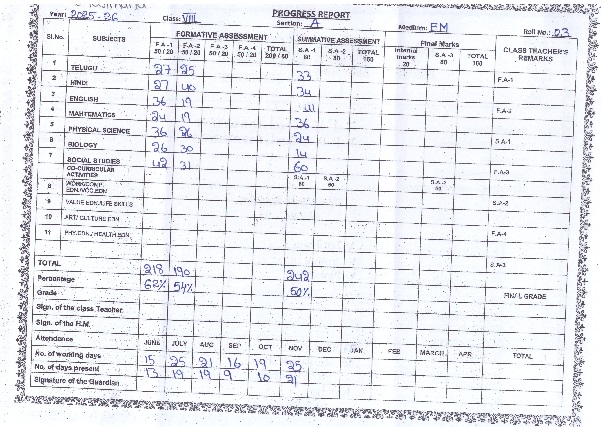 PROGRESS REPORT
Year: 2025-26 Class: VIII Section: A Medium: EM Roll No.: 03
Sl.No. SUBJECTS FORMATIVE ASSESSMENT SUMMATIVE ASSESSMENT Final Marks CLASS TEACHER'S REMARKS
F.A-1 50/20 F.A-2 50/20 F.A-3 50/20 F.A-4 50/20 TOTAL 200/80 S.A-1 80 S.A-2 80 TOTAL 160 Internal marks 20 S.A-3 80 TOTAL 100
1 TELUGU 27 25 33 F.A-1
2 HINDI 27 40 34
3 ENGLISH 36 19 F.A-2
4 MAHTEMATICS 24 19 36
5 PHYSICAL SCIENCE 36 26 24 S.A-1
6 BIOLOGY 26 30 14
7 SOCIAL STUDIES 42 31 60 F.A-3
CO-CURICULAR ACTIVITIES S.A-1 80 S.A-2 80 S.A-3 80
8 WORK/COMP. EDN./VOC.EDN
9 VALUE EDN./LIFE SKILLS S.A-2
10 ART / CULTURE EDN
11 PHY.EDN. / HEALTH EDN F.A-4
TOTAL 218 190 242 S.A-3
Percentage 62% 54% 50%
Grade FINAL GRADE
Sign. of the class Teacher
Sign. of the H.M.
Attendance JUNE JULY AUG SEP OCT NOV DEC JAN FEB MARCH APR TOTAL
No. of working days 15 25 21 16 19 25
No. of days present 13 19 19 9 10 21
Signature of the Guardian